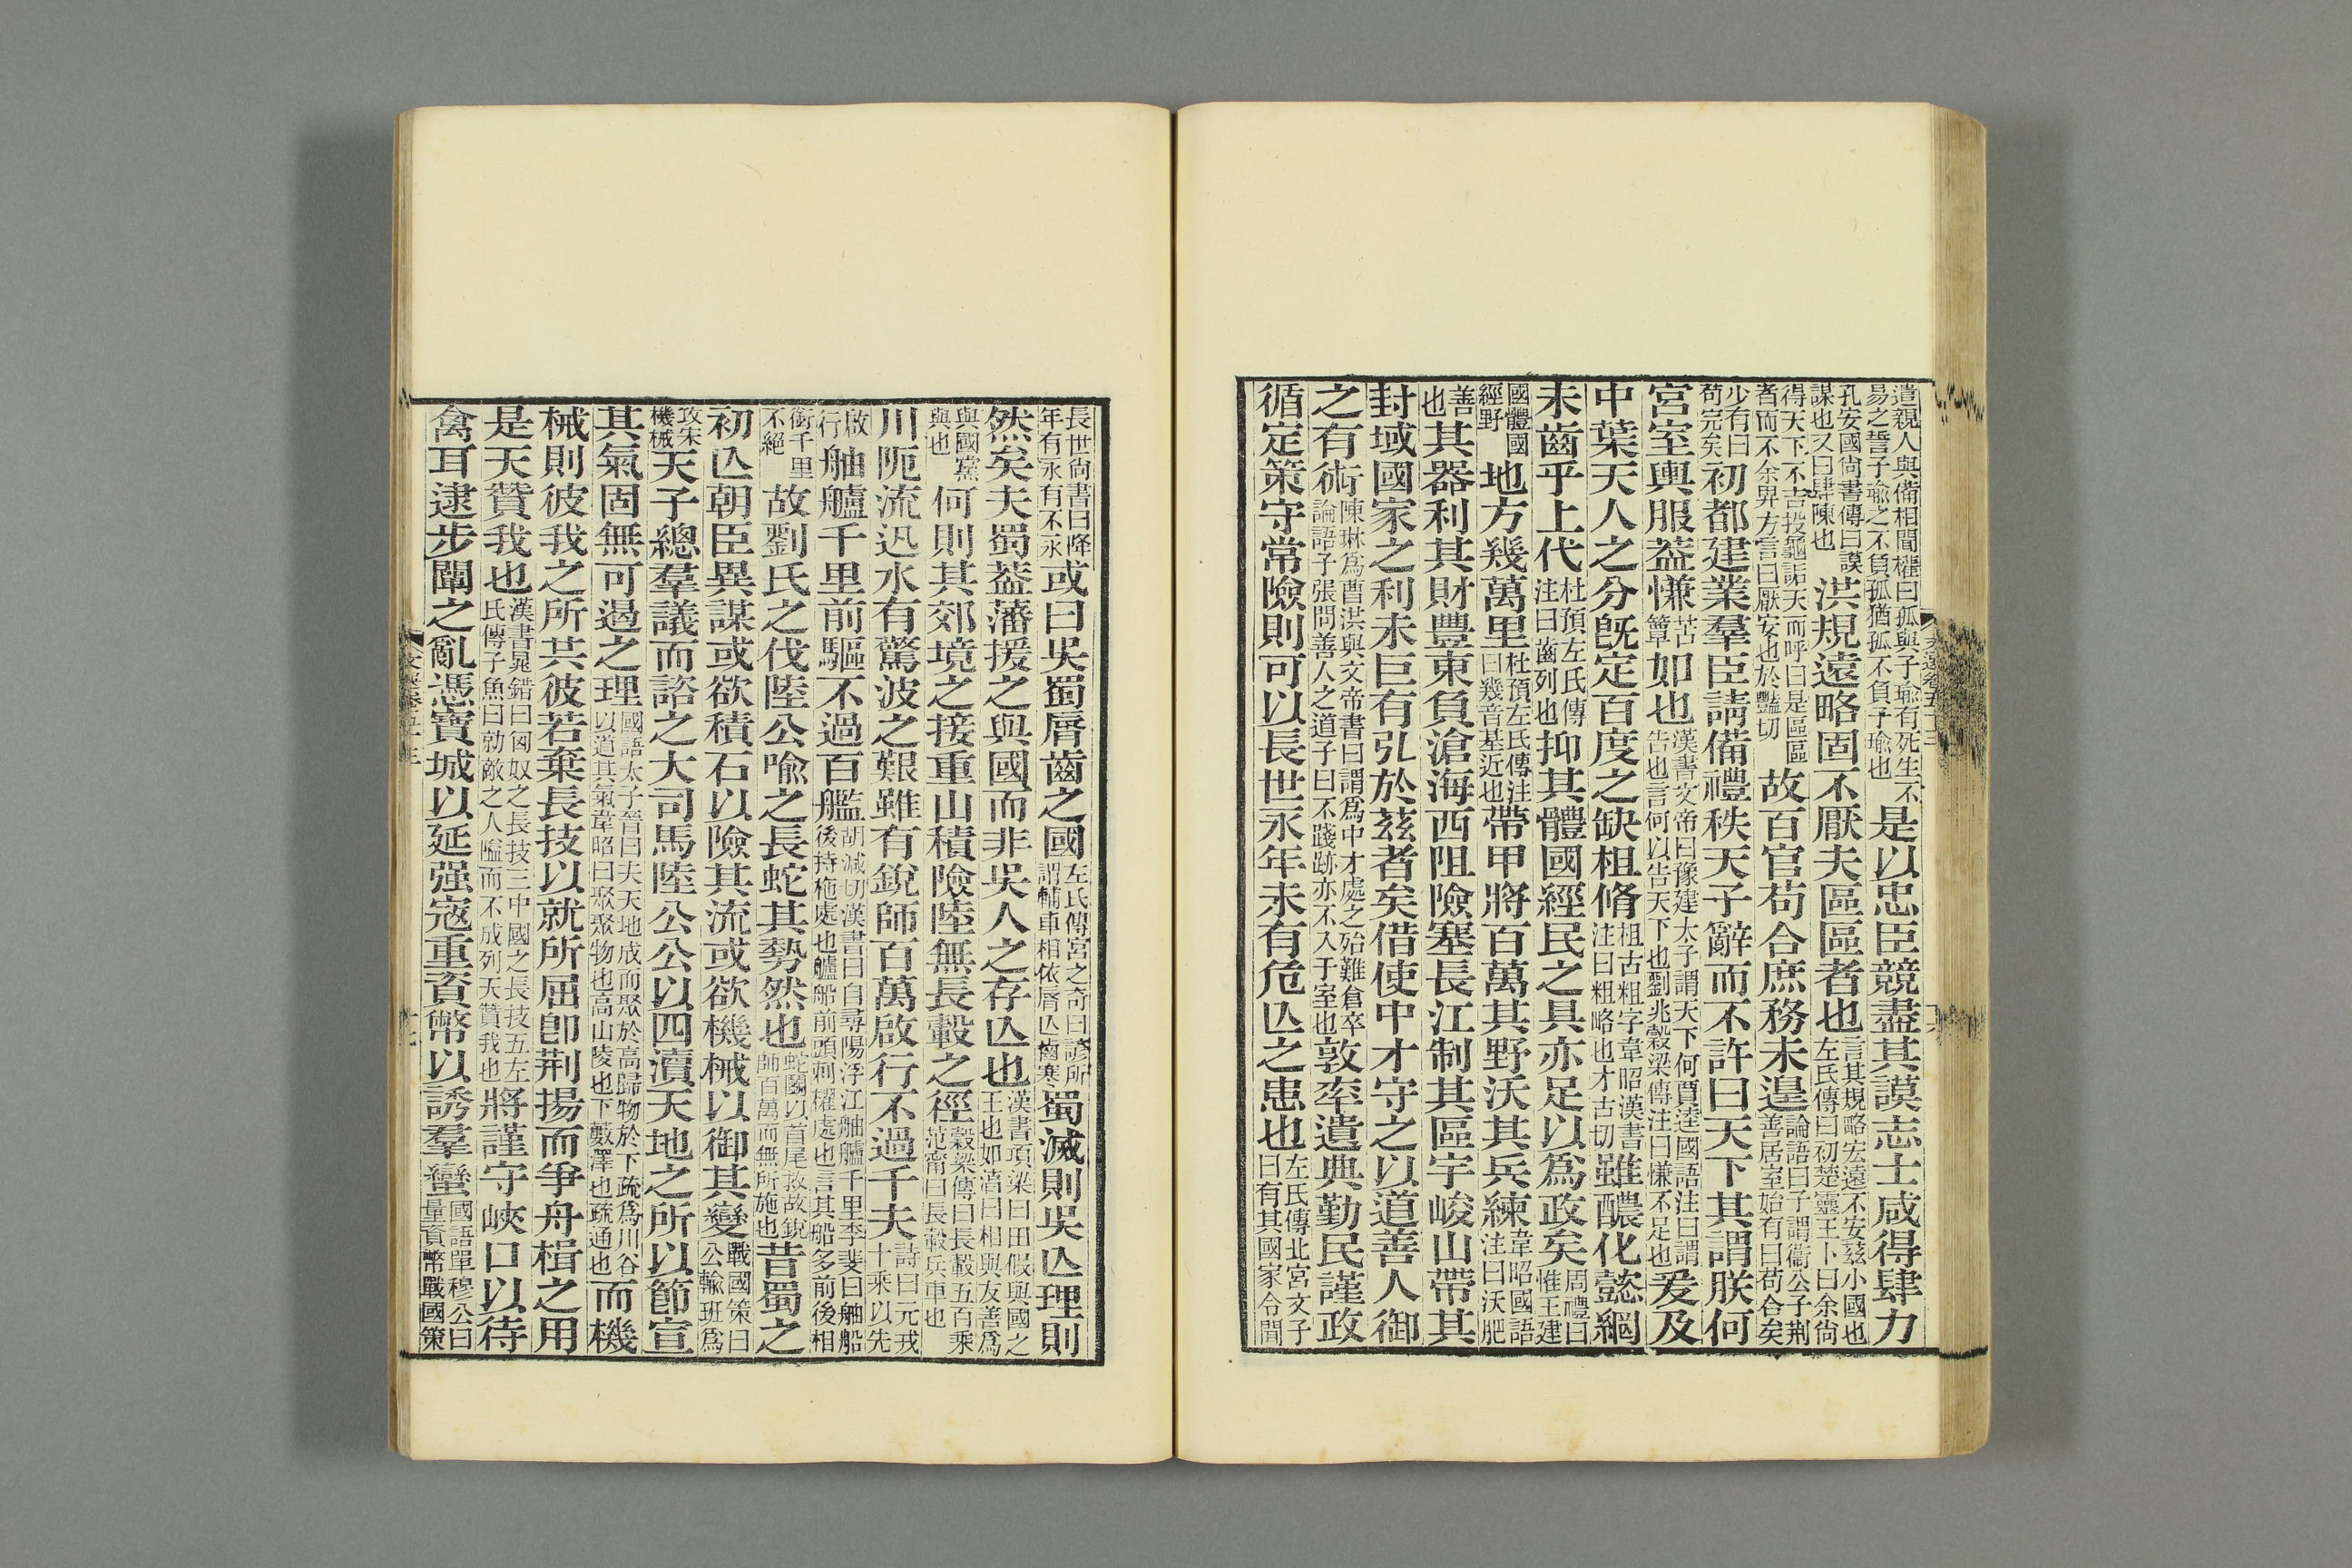 遣親人與備相聞權曰孤與子瑜有死生不易之誓子瑜之不負孤猶孤不負子瑜也是以忠臣競盡其謨志士咸得肆力
孔安國尚書傳曰謨謀也又曰肆陳也洪規遠略固不厭夫區區者也言其規略宏遠不安茲小國也左氏傳曰初楚靈王卜曰余尚
得天下不吉投龜詬天而呼曰是區區者而不余畀方言曰厭安也於豔切故百官苟合庶務未遑論語曰子謂衞公子荆善居室始有曰苟合矣
少有曰苟完矣初都建業羣臣請備禮秩天子辭而不許曰天下其謂朕何
宮室輿服葢慊苦簟如也漢書文帝曰豫建太子謂天下何賈逵國語注曰謂告也言何以告天下也劉兆穀梁傳注曰慊不足也爰及
中葉天人之分旣定百度之缺粗脩粗古粗字韋昭漢書注曰粗略也才古切雖醲化懿綱
未齒乎上代杜預左氏傳注曰齒列也抑其體國經民之具亦足以爲政矣周禮曰惟王建
國體國經野地方幾萬里杜預左氏傳注曰幾音基近也帶甲將百萬其野沃其兵練韋昭國語注曰沃肥
善也其器利其財豐東負滄海西阻險塞長江制其區宇峻山帶其
封域國家之利未巨有弘於茲者矣借使中才守之以道善人御
之有術陳琳爲曹洪與文帝書曰謂爲中才處之殆難倉卒論語子張問善人之道子曰不踐跡亦不入于室也敦率遺典勤民謹政
循定策守常險則可以長世永年未有危亾之患也左氏傳北宮文子曰有其國家令聞
長世尚書曰降年有永有不永或曰吳蜀脣齒之國左氏傳宮之奇曰諺所謂輔車相依脣亾齒寒蜀滅則吳亾理則
然矣夫蜀葢藩援之與國而非吳人之存亾也漢書項梁曰田假與國之王也如淳曰相與友善爲
與國黨與也何則其郊境之接重山積險陸無長轂之徑穀梁傳曰長轂五百乘范甯曰長轂兵車也
川阨流迅水有驚波之艱雖有銳師百萬啟行不過千夫詩曰元戎十乘以先
啟行舳艫千里前驅不過百艦胡減切漢書曰自尋陽浮江舳艫千里李斐曰舳船後持柂處也艫船前頭刺櫂處也言其船多前後相
銜千里不絕故劉氏之伐陸公喻之長蛇其勢然也蛇鬭以首尾救故銳師百萬而無所施也昔蜀之
初亾朝臣異謀或欲積石以險其流或欲機械以御其變戰國策曰公輸班爲
攻宋機械天子總羣議而諮之大司馬陸公公以四瀆天地之所以節宣
其氣固無可遏之理國語太子晉曰夫天地成而聚於高歸物於下疏爲川谷以道其氣韋昭曰聚聚物也高山陵也下藪澤也疏通也而機
械則彼我之所共彼若棄長技以就所屈卽荆揚而爭舟楫之用
是天贊我也漢書晁錯曰匈奴之長技三中國之長技五左氏傳子魚曰勍敵之人隘而不成列天贊我也將謹守峽口以待
禽耳逮步闡之亂憑寶城以延强寇重資幣以誘羣蠻國語單穆公曰量資幣戰國策